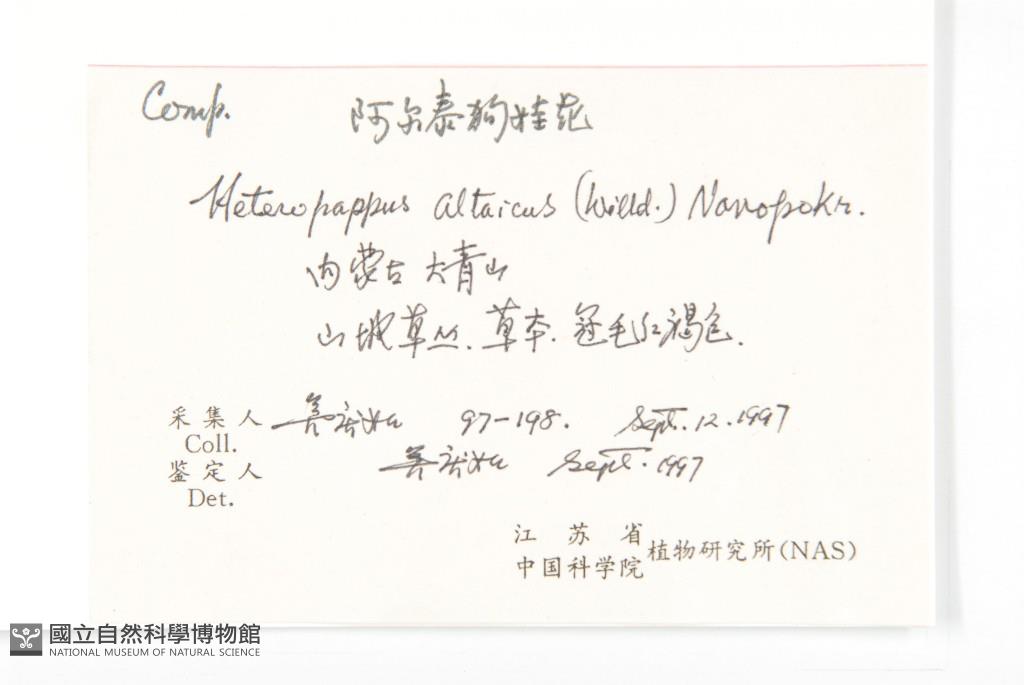 Comp. 阿尔泰狗娃花
Heteropappus altaicus (Willd.) Novopokr.
内蒙古 大青山
山坡草丛. 草本. 冠毛红褐色.
采集人 97-198. Sept. 12. 1997
Coll.
鉴定人 Sept. 1997
Det.
江苏省
中国科学院 植物研究所(NAS)
國立自然科學博物館
NATIONAL MUSEUM OF NATURAL SCIENCE